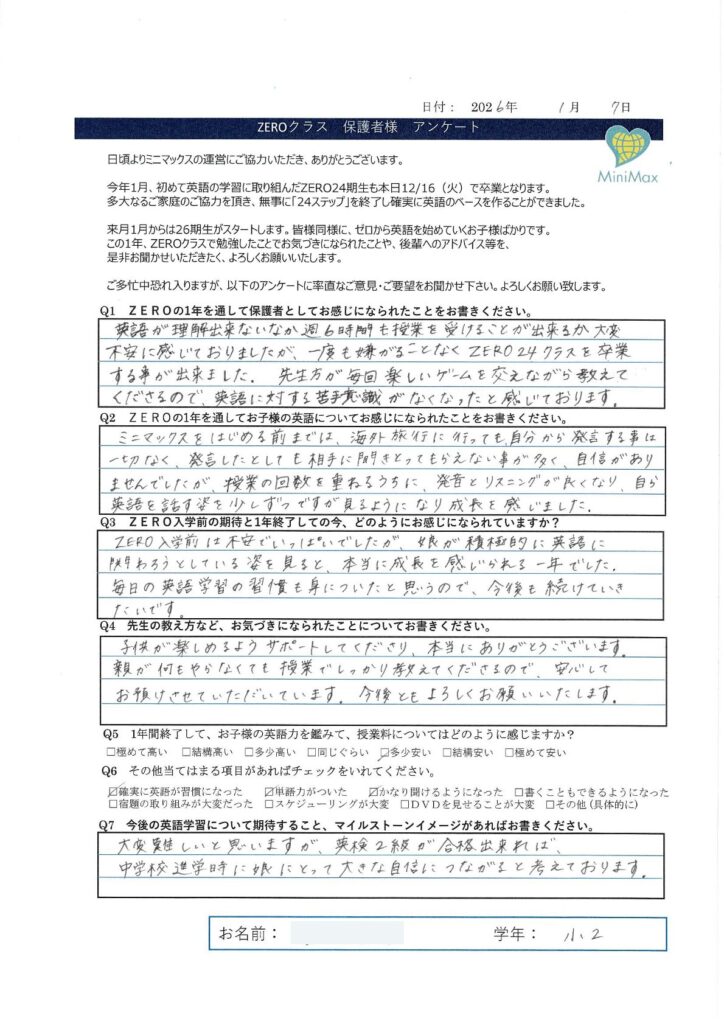 日付： 2026年 1月 7日
ZEROクラス 保護者様 アンケート
MiniMax
日頃よりミニマックスの運営にご協力いただき、ありがとうございます。
今年1月、初めて英語の学習に取り組んだZERO24期生も本日12/16（火）で卒業となります。
多大なるご家庭のご協力を頂き、無事に「24ステップ」を終了し確実に英語のベースを作ることができました。
来月1月からは26期生がスタートします。皆様同様に、ゼロから英語を始めていくお子様ばかりです。
この1年、ZEROクラスで勉強したことでお気づきになられたことや、後輩へのアドバイス等を、
是非お聞かせいただきたく、よろしくお願いいたします。
ご多忙中恐れ入りますが、以下のアンケートに率直なご意見・ご要望をお聞かせ下さい。よろしくお願い致します。
Q1 ZEROの1年を通して保護者としてお感じになられたことをお書きください。
英語が理解出来ないなか週6時間も授業を受けることが出来るか大変
不安に感じておりましたが、一度も嫌がることなくZERO24クラスを卒業
する事が出来ました。 先生方が毎回楽しいゲームを交えながら教えて
くださるので、英語に対する苦手意識がなくなったと感じております。
Q2 ZEROの1年を通してお子様の英語についてお感じになられたことをお書きください。
ミニマックスをはじめる前までは、海外旅行に行っても自分から発言する事は
一切なく、発言したとしても相手に聞きとってもらえない事が多く、自信があり
ませんでしたが、授業の回数を重ねるうちに、発音とリスニングが良くなり、自ら
英語を話す姿を少しずつですが見るようになり成長を感じました。
Q3 ZERO入学前の期待と1年終了しての今、どのようにお感じになられていますか？
ZERO入学前は不安でいっぱいでしたが、娘が積極的に英語に
関わろうとしている姿を見ると、本当に成長を感じられる一年でした。
毎日の英語学習の習慣も身についたと思うので、今後も続けていき
たいです。
Q4 先生の教え方など、お気づきになられたことについてお書きください。
子供が楽しめるようサポートしてくださり、本当にありがとうございます。
親が何もやらなくても授業でしっかり教えてくださるので、安心して
お預けさせていただいています。今後ともよろしくお願いいたします。
Q5 1年間終了して、お子様の英語力を鑑みて、授業料についてはどのように感じますか？
□極めて高い □結構高い □多少高い □同じぐらい ☑多少安い □結構安い □極めて安い
Q6 その他当てはまる項目があればチェックをいれてください。
☑確実に英語が習慣になった ☑単語力がついた ☑かなり聞けるようになった □書くこともできるようになった
□宿題の取り組みが大変だった □スケジューリングが大変 □DVDを見せることが大変 □その他（具体的に）
Q7 今後の英語学習について期待すること、マイルストーンイメージがあればお書きください。
大変難しいと思いますが、英検2級が合格出来れば、
中学校進学時に娘にとって大きな自信につながると考えております。
お名前： 学年： 小2